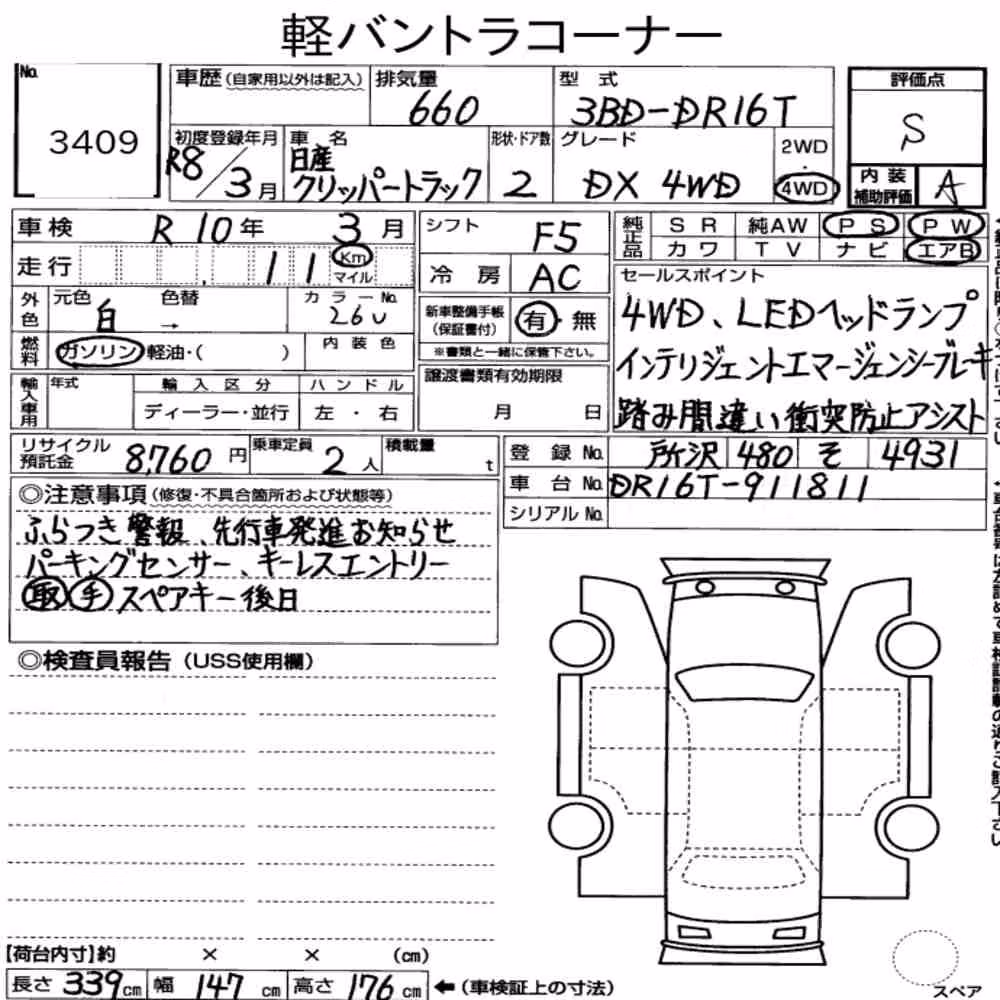 軽バントラコーナー
No.
3409
車歴(自家用以外は記入)
排気量
660
型式
3BD-DR16T
評価点
S
初度登録年月
R8/3月
車名
日産
クリッパートラック
形状・ドア数
2
グレード
DX 4WD
2WD
・
4WD
内装
補助評価
A
車検 R10年 3月
走行 11 Km
マイル
シフト F5
冷房 AC
純正品 SR 純AW PS PW
カワ TV ナビ エアB
外色 元色 白 色替 → カラーNo. 26U
燃料 ガソリン・軽油・( ) 内装色
新車整備手帳
(保証書付)
有・無
※書類と一緒に保管下さい。
セールスポイント
4WD、LEDヘッドランプ
インテリジェントエマージェンシーブレーキ
踏み間違い衝突防止アシスト
輸入車用 年式 輸入区分 ハンドル
ディーラー・並行 左・右
譲渡書類有効期限
月 日
リサイクル
預託金
8,760円
乗車定員
2人
積載量
t
登録No. 所沢 480 そ 4931
車台No. DR16T-911811
シリアルNo.
◎注意事項(修復・不具合箇所および状態等)
ふらつき警報、先行車発進お知らせ
パーキングセンサー、キーレスエントリー
取手スペアキー後日
◎検査員報告(USS使用欄)
【荷台内寸】約 × × (cm)
長さ 339cm 幅 147cm 高さ 176cm ←(車検証上の寸法)
スペア